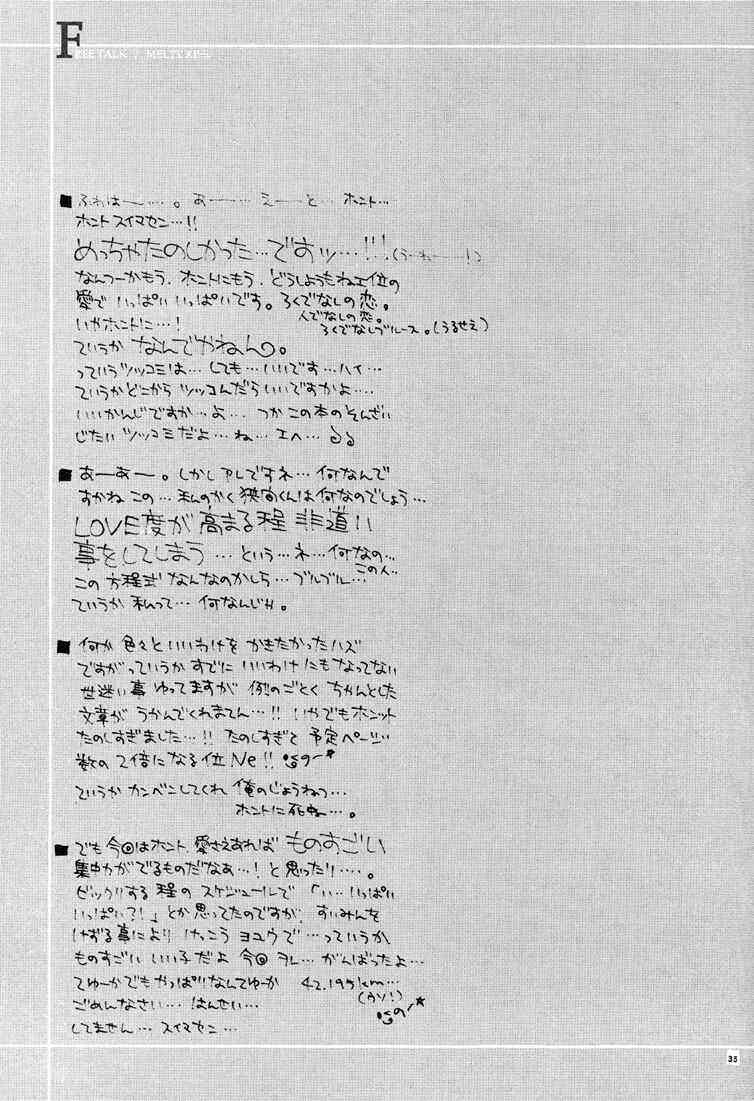 FREE TALK / MELTY メルー
■ ふわは——…。あー—… えーと… ホント…
ホント スイマセン…!!
めっちゃたのしかった…ですッ…!!!(うーねー—!)
なんつーかもう、ホントにもう、どうしようもねェ位の
愛で いっぱい いっぱいです。ろくでなしの恋。
人でなしの恋。
いやホントに…!
ろくでなしブルース。(うるせえ)
ていうか なんでやねん。
っていうツッコミは… しても…いいです…ハイ…
ていうかどこから ツッコんだらいいですかよ…
いいかんじですか…よ… つか この本のそんざい
じたい ツッコミだよ…ね… エヘ…
■ あーあー。しかし アレですネ… 何なんで
すかね この… 私のかく 狭向くんは何なのでしょう…
LOVE度が高まる程 非道い
事をしてしまう … という…ネ…何なの…
この人…
この 方程式 なんなのかしら… ブルブル…
ていうか 私って… 何なんじゃ。
■ 何か 色々と いいわけを かきたかったハズ
ですがっていうか すでに いいわけにもなってない
世迷い事 ゆってますが 例のごとく ちゃんとした
文章が うかんでくれません…!! いやでもホント
たのしすぎました…!! たのしすぎて 予定ページ
数の 2倍になる位 Ne!!
ていうか カンベンしてくれ 俺のじょうねつ…
ホントに死ぬ…。
■ でも 今回はホント、愛さえあれば ものすごい
集中力がでるものだなぁ…! と思ったり…。
ビックリする程の スケジュールで 「い… いっぱい
いっぱい?!」とか思ってたのですが、すいみんを
けずる事により けっこう ヨユウで …っていうか
ものすごい いい子だよ 今回 オレ… がんばったよ…
てゆーかでもやっぱりなんてゆーか 42.195km…
(ウソ!)
ごめんなさい… はんせい…
してません… スイマセン…
35